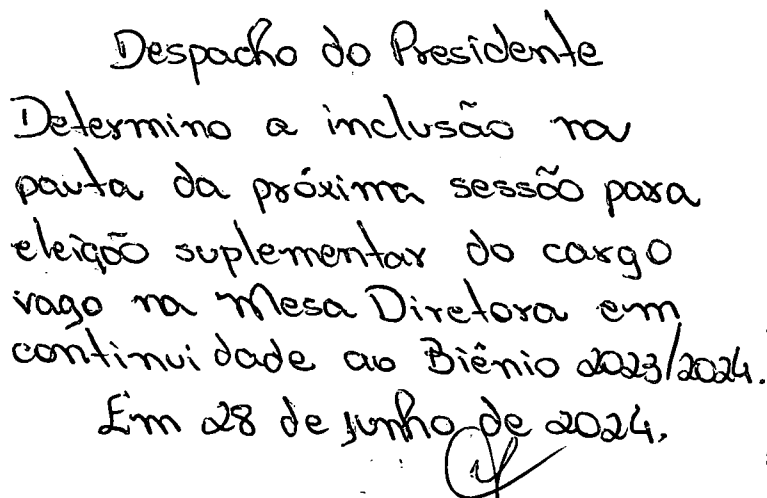 Despacho do Presidente
Determino a inclusão na
pauta da próxima sessão para
eleição suplementar do cargo
vago na Mesa Diretora em
continuidade ao Biênio 2023/2024.
Em 28 de junho de 2024.